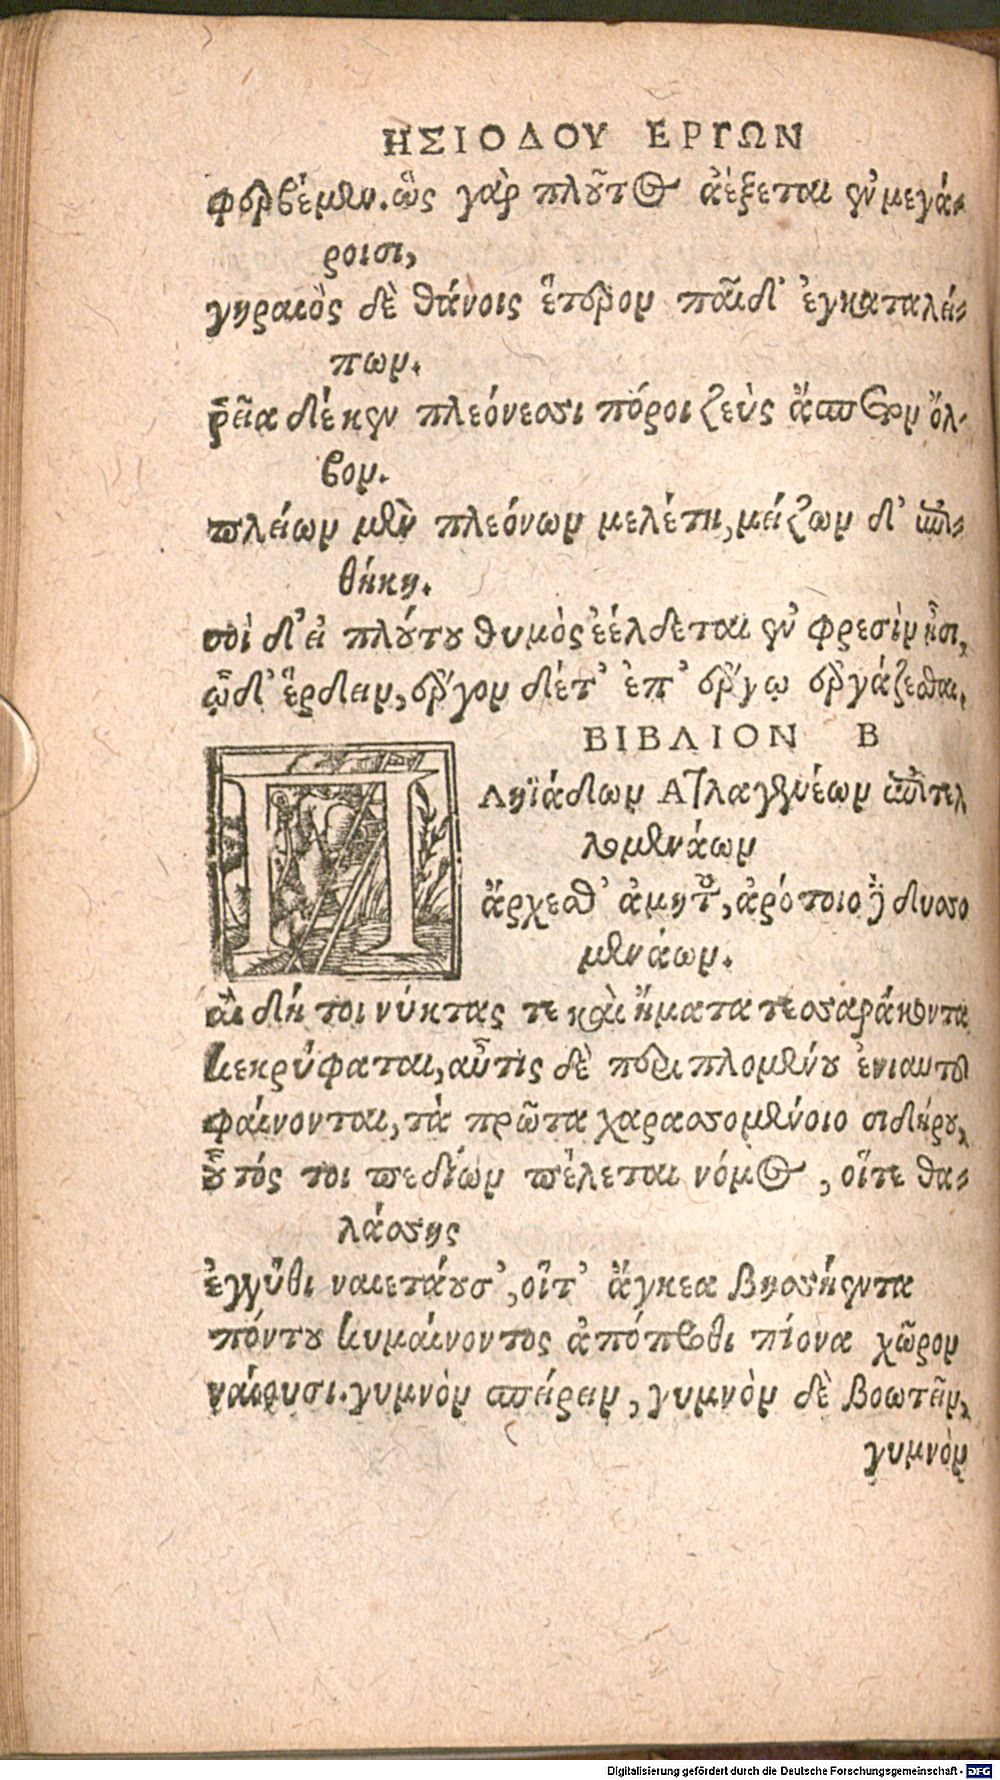 ΗΣΙΟΔΟΥ ΕΡΓΩΝ
φερβέμεν. ὣς γὰρ πλοῦτος ἀέξεται ἐν μεγά-
ροισι,
γηραιὸς δὲ θάνοις ἕτερον παῖδ' ἐγκαταλεί-
πων.
ῥεῖα δέ κεν πλεόνεσσι πόροι ζεὺς ἄσπετον ὄλ-
βον.
πλείων μὲν πλεόνων μελέτη, μείζων δ' ἐπι-
θήκη.
σοὶ δ' εἰ πλούτου θυμὸς ἐέλδεται ἐν φρεσὶν ᾗσι,
ᾧδ' ἕρδειν, ἔργον δέ τ' ἐπ' ἔργῳ ἐργάζεσθαι.
ΒΙΒΛΙΟΝ Β
ΠΛηϊάδων Ατλαγενέων ἐπιτελ
λομενάων
ἄρχεσθ' ἀμητοῦ, ἀρότοιο δὲ δυσσο
μενάων.
αἳ δή τοι νύκτας τε καὶ ἤματα τεσσαράκοντα
κεκρύφαται, αὖτις δὲ περιπλομένου ἐνιαυτοῦ
φαίνονται, τὰ πρῶτα χαρασσομένοιο σιδήρου,
οὗτός τοι πεδίων πέλεται νόμος, οἵτε θα-
λάσσης
ἐγγύθι ναιετάουσ', οἵτ' ἄγκεα βησσήεντα
πόντου κυμαίνοντος ἀπόπροθι πίονα χῶρον
ναίουσι. γυμνὸν σπείρειν, γυμνὸν δὲ βοωτεῖν,
γυμνὸν
Digitalisierung gefördert durch die Deutsche Forschungsgemeinschaft - DFG